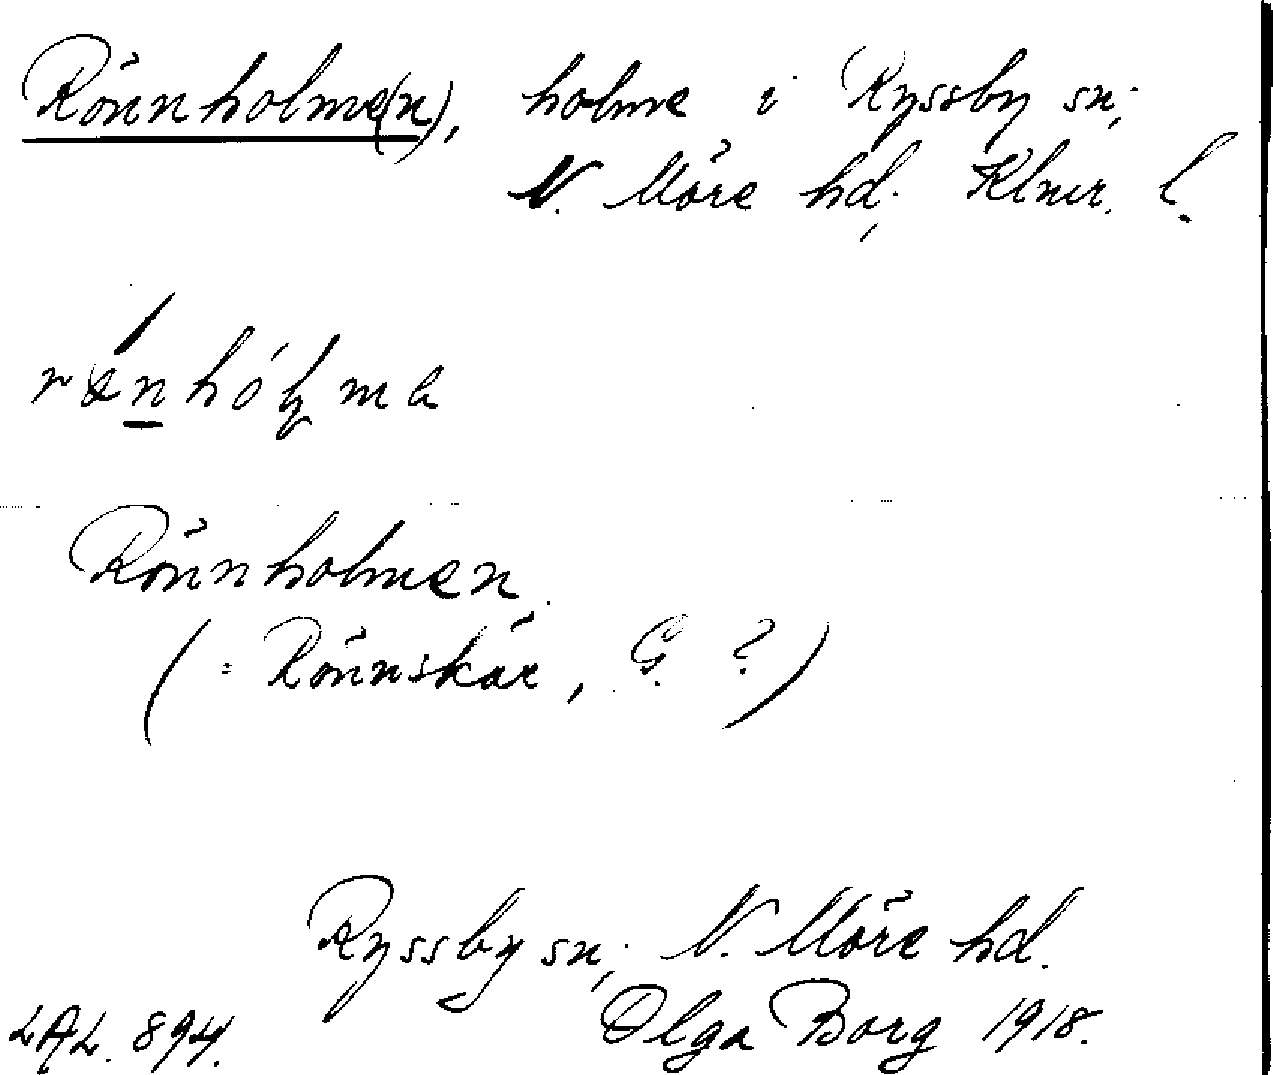 Rönnholme(n), holme i Ryssby sn;
N. Möre hd; Klmr. l.
Rönnholmen.
(= Rönnskär, G. ?)
Ryssby sn; N. Möre hd.
LAL. 894. Olga Borg 1918.